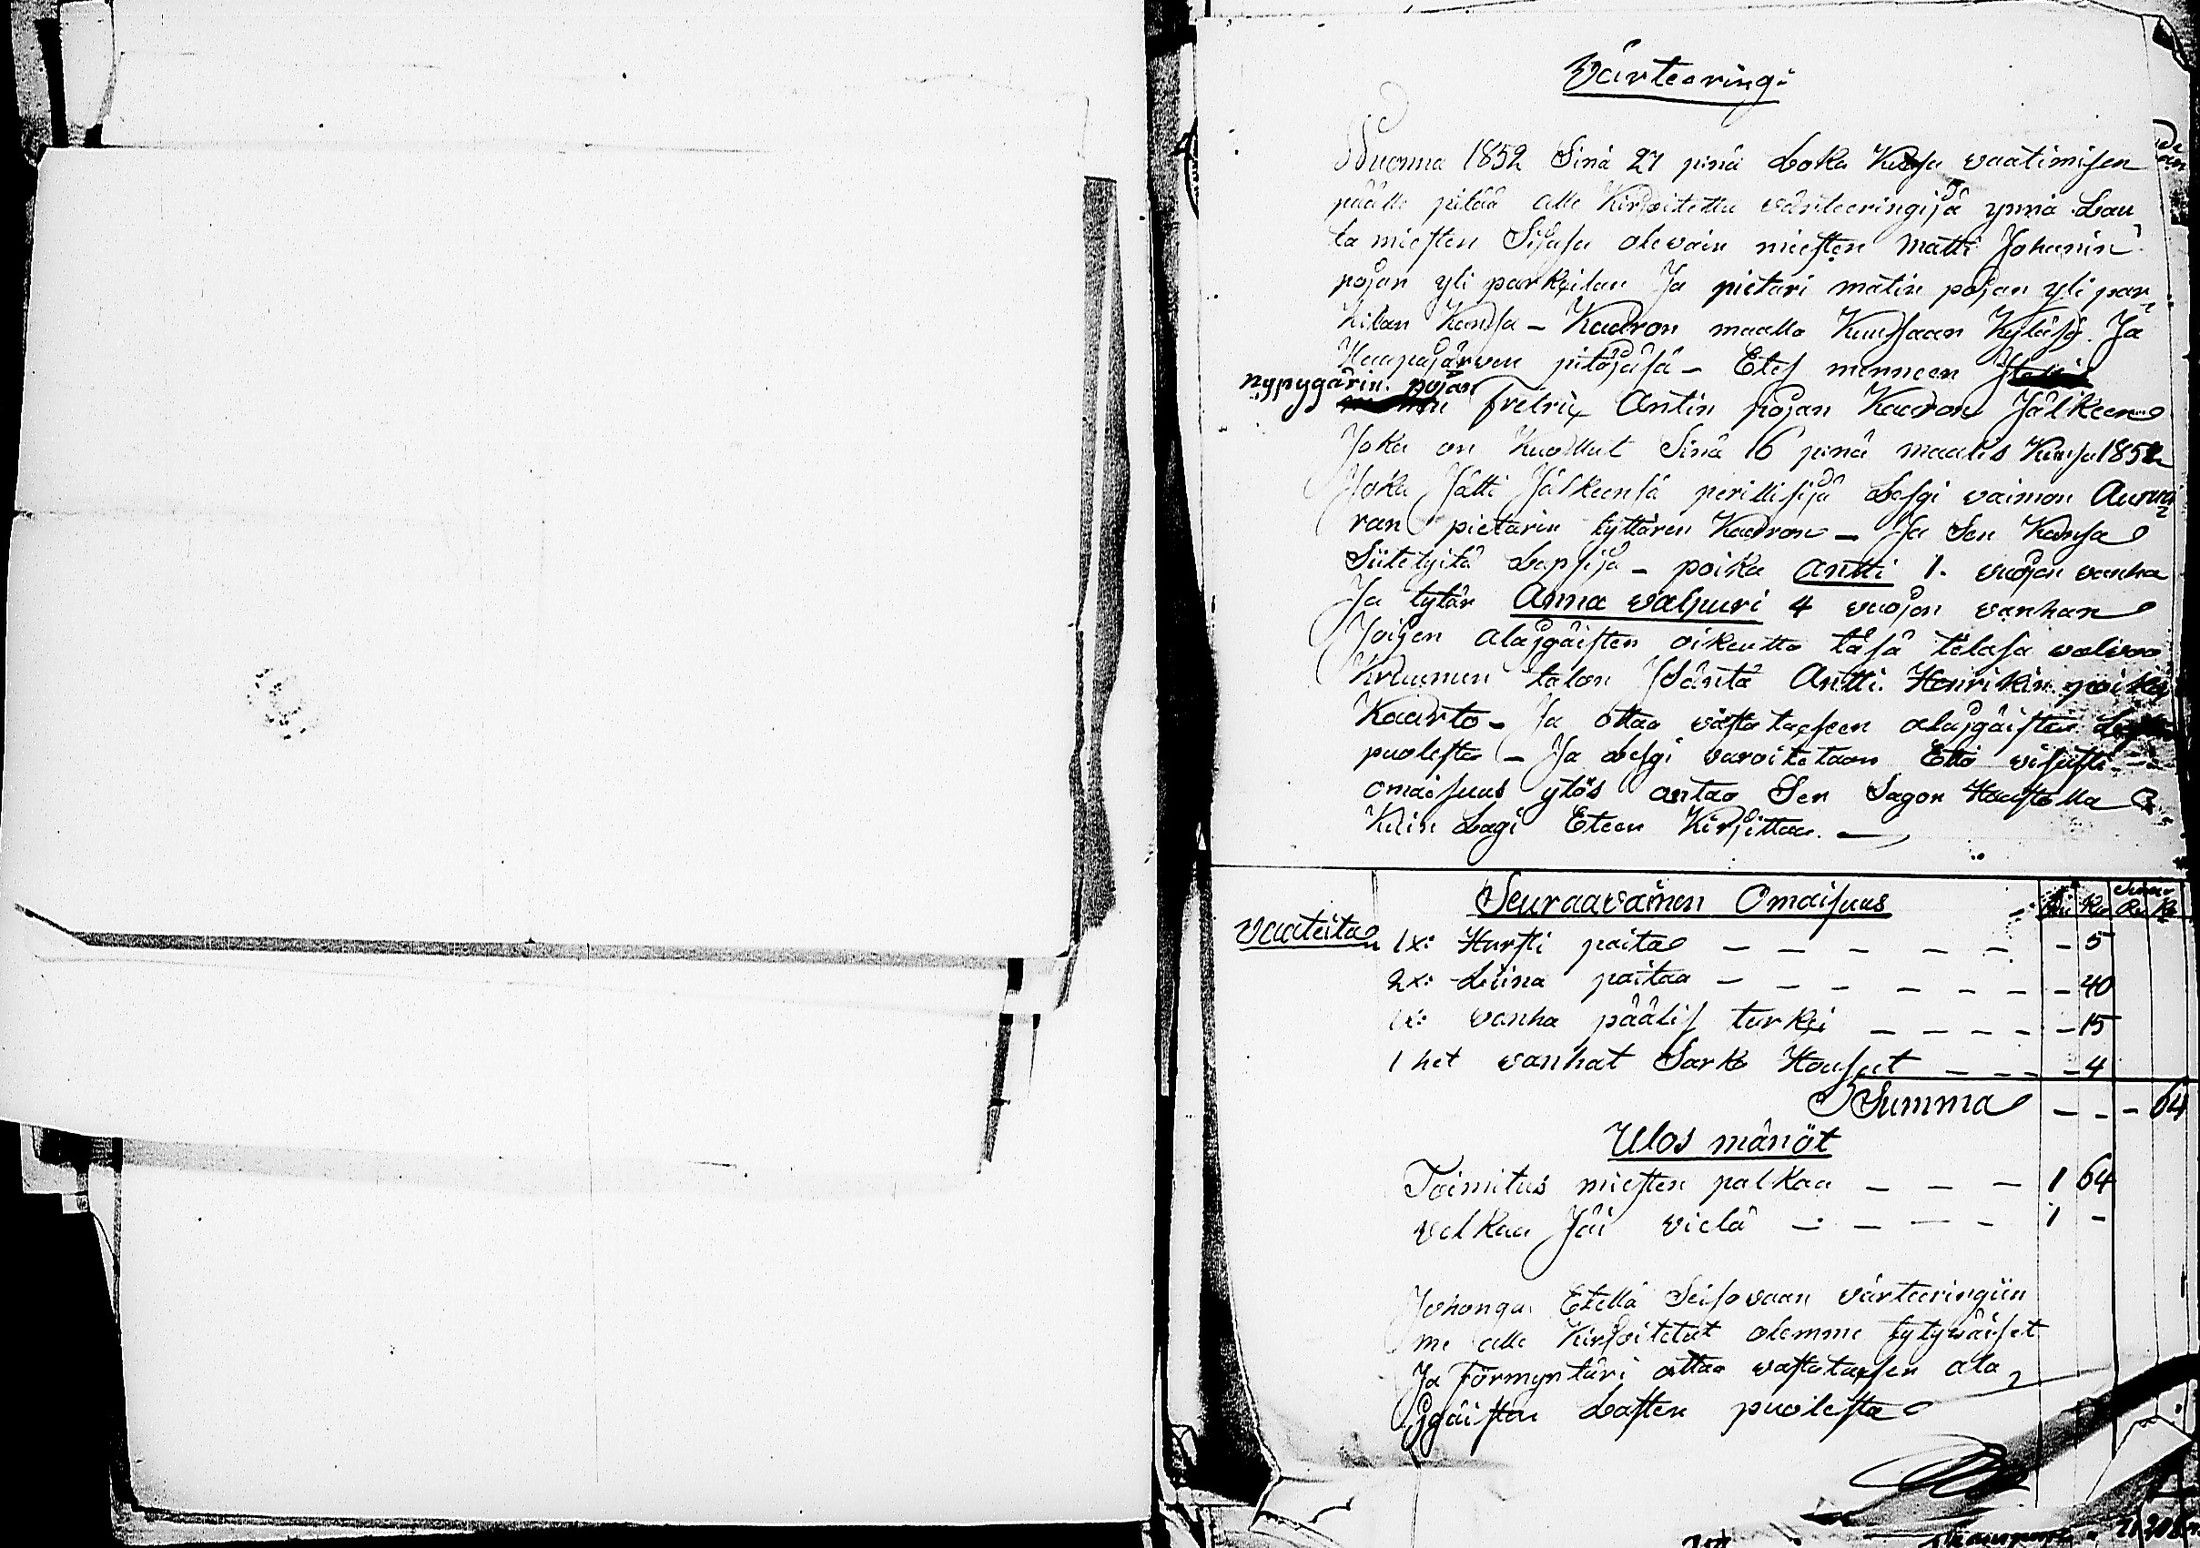 Värteeringi
Wuonna 1852 Sinä 27 pinä Loka Kuusa vaatimisen
päälle pitää alle Kirjoitettu värteeringijä ynnä Lau
ta miesten Siasa olevain miesten Matti Johanin
pojan yli parkkilan Ja pietari matin pojan yli par
kilan Kansa - Kaaron maalla Kuusaan Kyläsä Ja
Haapajärven pitäjäsä - Etes menneen
nypygärin pojan
fretrix Antin pojan Kaaron Jälkeen
Joka on Kuollut Sinä 16 pinä maalis Kuusa 1852
Joka Jätti Jälkeensä perillisijä Lesgi vaimon Auroo
ran pietarin tyttären Kaaron - Ja Sen Kansa
Siitetyitä Lapsija - poika Antti 1. vuojen vanha
Ja tytär Anna valpuri 4 vuojen vanhan
Joijen alajgäisten oikeutta täsä tilasa valvoo
Kruunun talon Isäntä Antti Henrikin poika
Kaarto - Ja ottaa vasta taeseen alajgäisten
puolesta - Ja Lesgi varoitetaan Että visusti
omaisuus ylös antaa Sen Sagon Haastolla
Kuin Lagi Eteen Kirjoittaa. -
Seuraavainen Omaisuus
vaateita 1x: Hursti paitao - - - - - - - 5
2x: Liina paitaa - - - - - - - - 40
1x: vanha päälis turkki - - - - - 15
1 het vanhat Sarka Housut - - - - 4
Summa - - - 64
Ulos mänöt
Toimitus miesten palkaa - - - 1 64
velkaa Jäi vielä - - - - 1 -
Johonga Etellä Seisovaan värteeringiin
me alle Kirjoitetut olemme tytyväiset
Ja Förmyntäri ottaa vastataesen ala
jgäisten Lasten puolesta